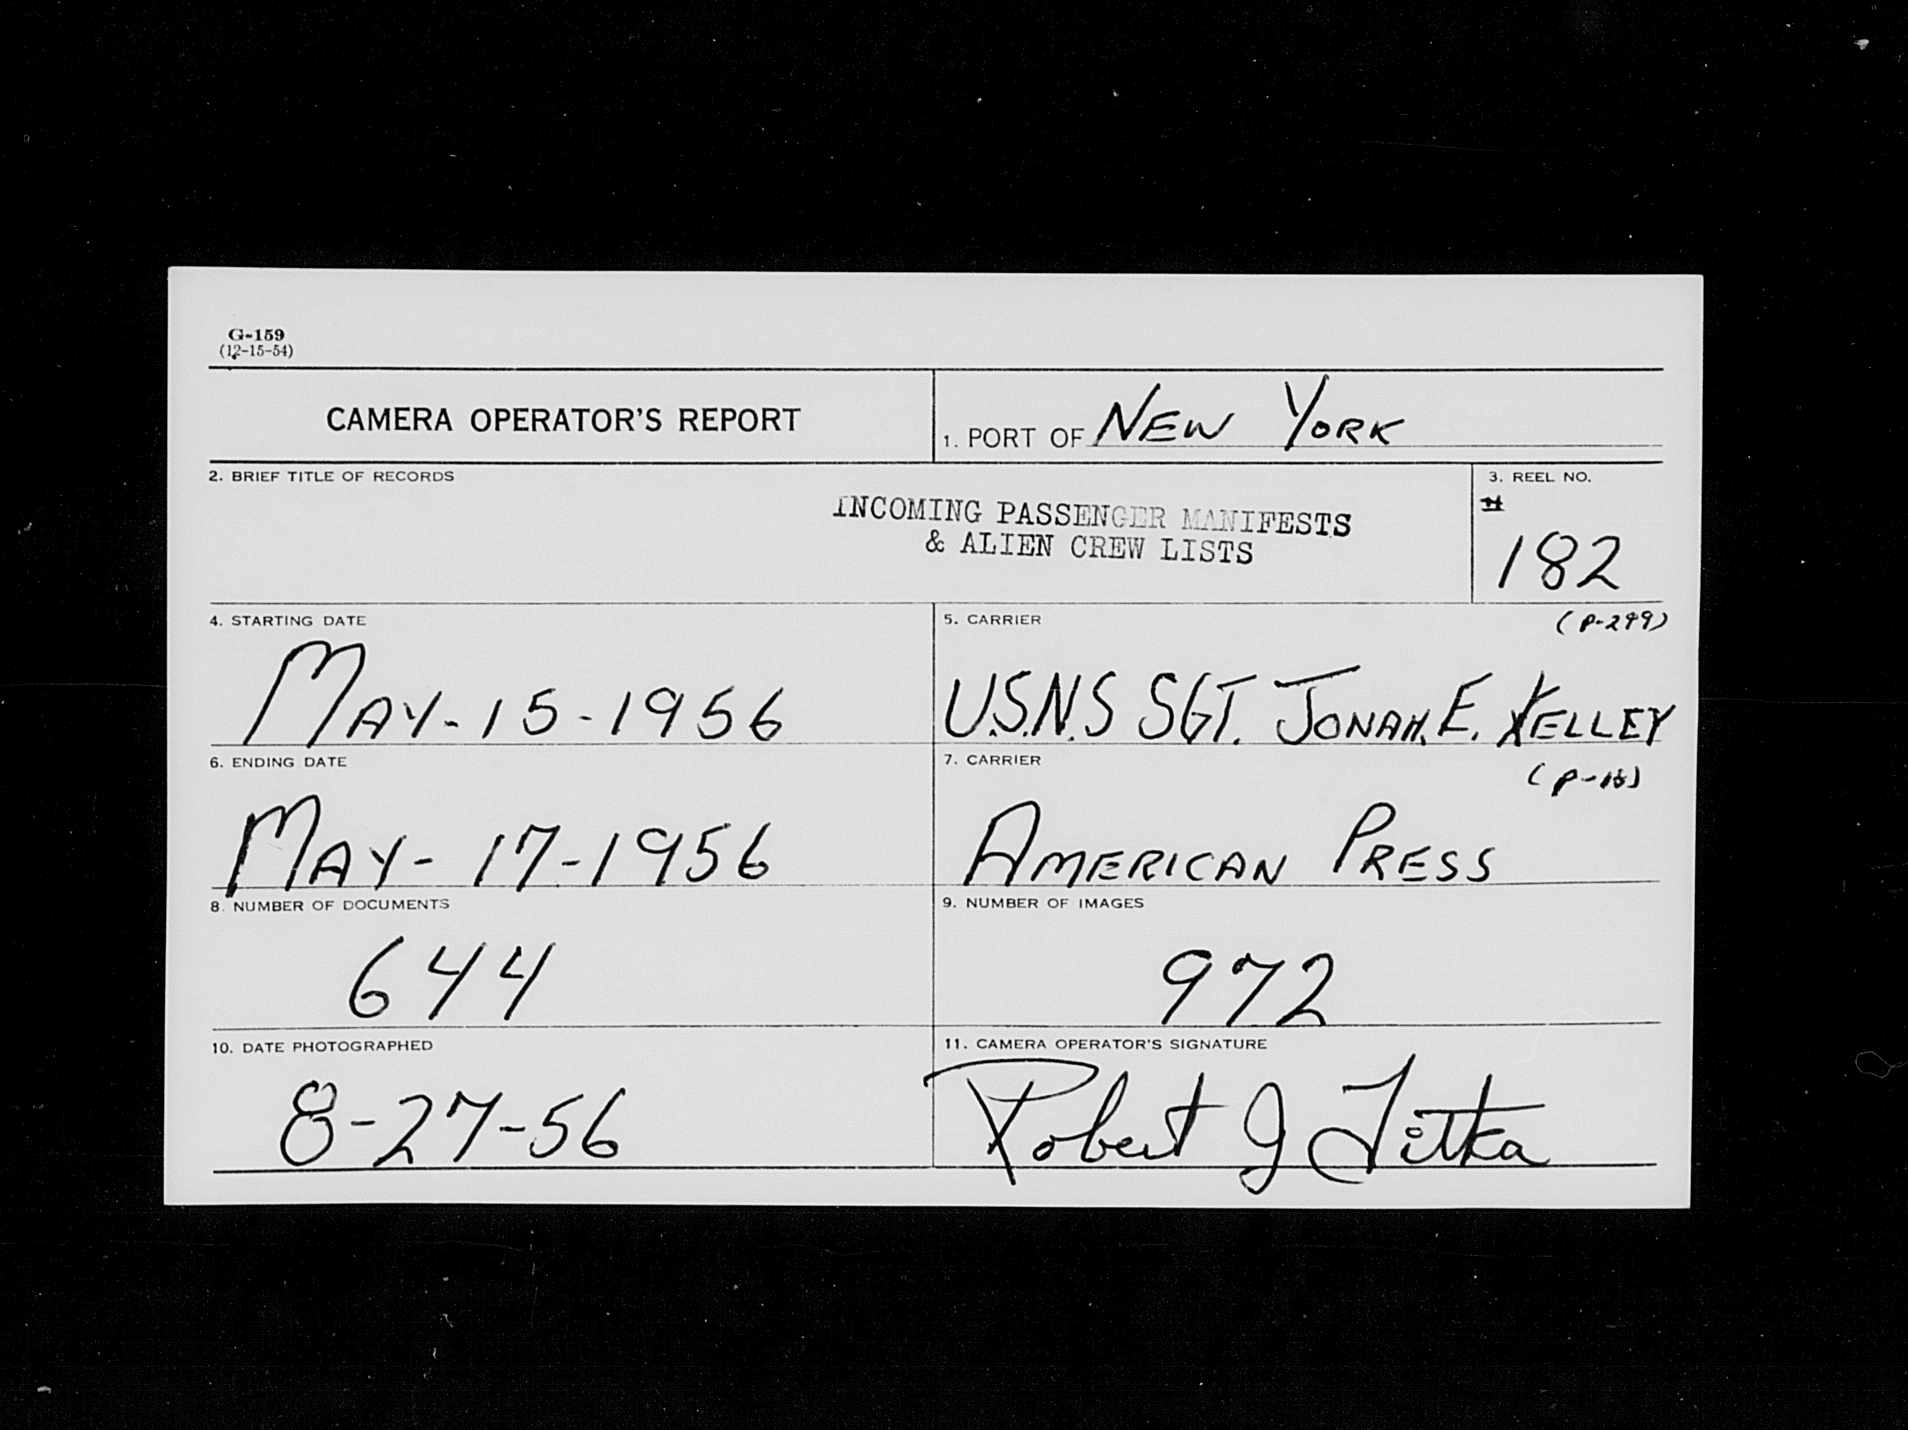 G-159
(12-15-54)
CAMERA OPERATOR'S REPORT
1. PORT OF NEW YORK
2. BRIEF TITLE OF RECORDS
INCOMING PASSENGER MANIFESTS
& ALIEN CREW LISTS
3. REEL NO.
#
182
4. STARTING DATE
MAY-15-1956
5. CARRIER
(P-299)
U.S.N.S SGT. JONAH. E. KELLEY
6. ENDING DATE
MAY-17-1956
7. CARRIER
AMERICAN PRESS
8. NUMBER OF DOCUMENTS
644
9. NUMBER OF IMAGES
972
10. DATE PHOTOGRAPHED
8-27-56
11. CAMERA OPERATOR'S SIGNATURE
Robert J Titka